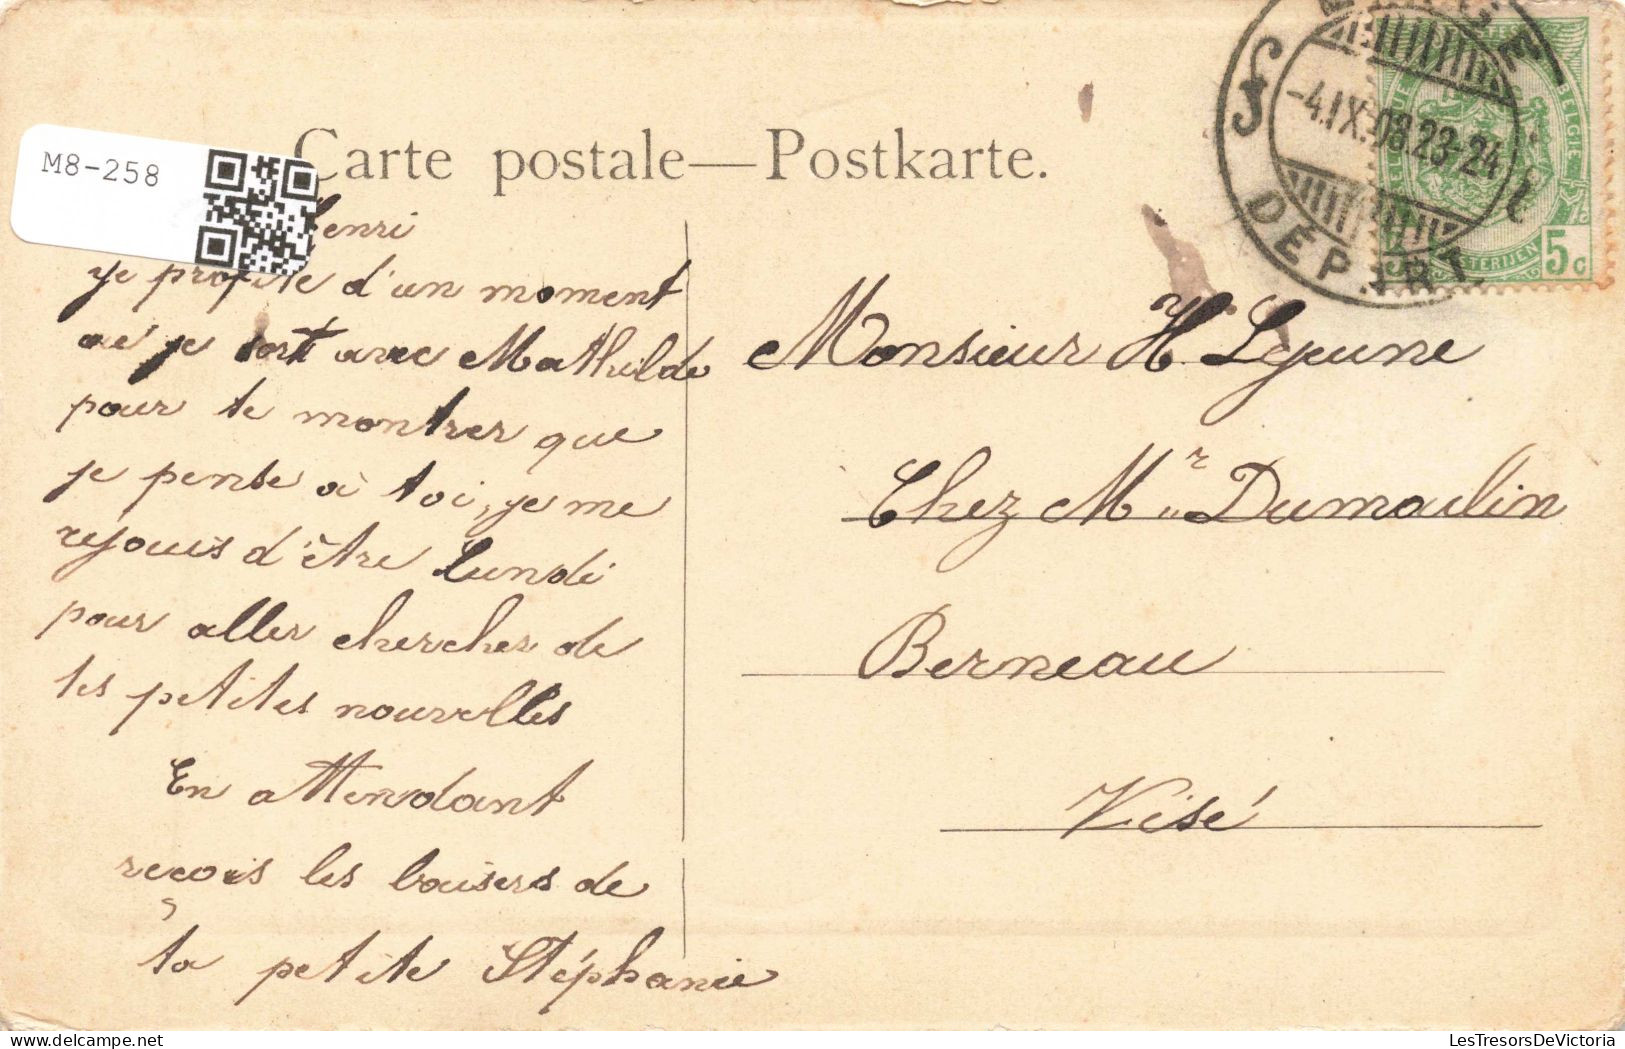 M8-258
Carte postale—Postkarte.
Henri
je profite d'un moment
où je sort avec Mathilde
pour te montrer que
je pense à toi, je me
rejouis d'être Lundi
pour aller chercher de
tes petites nouvelles
En attendant
reçois les baisers de
ta petite Stéphanie
-4.IX.08.23-24
DÉPART
BELGIE
5c
Monsieur H Lejeune
Chez Mr Dumoulin
Berneau
Visé
LesTresorsDeVictoria